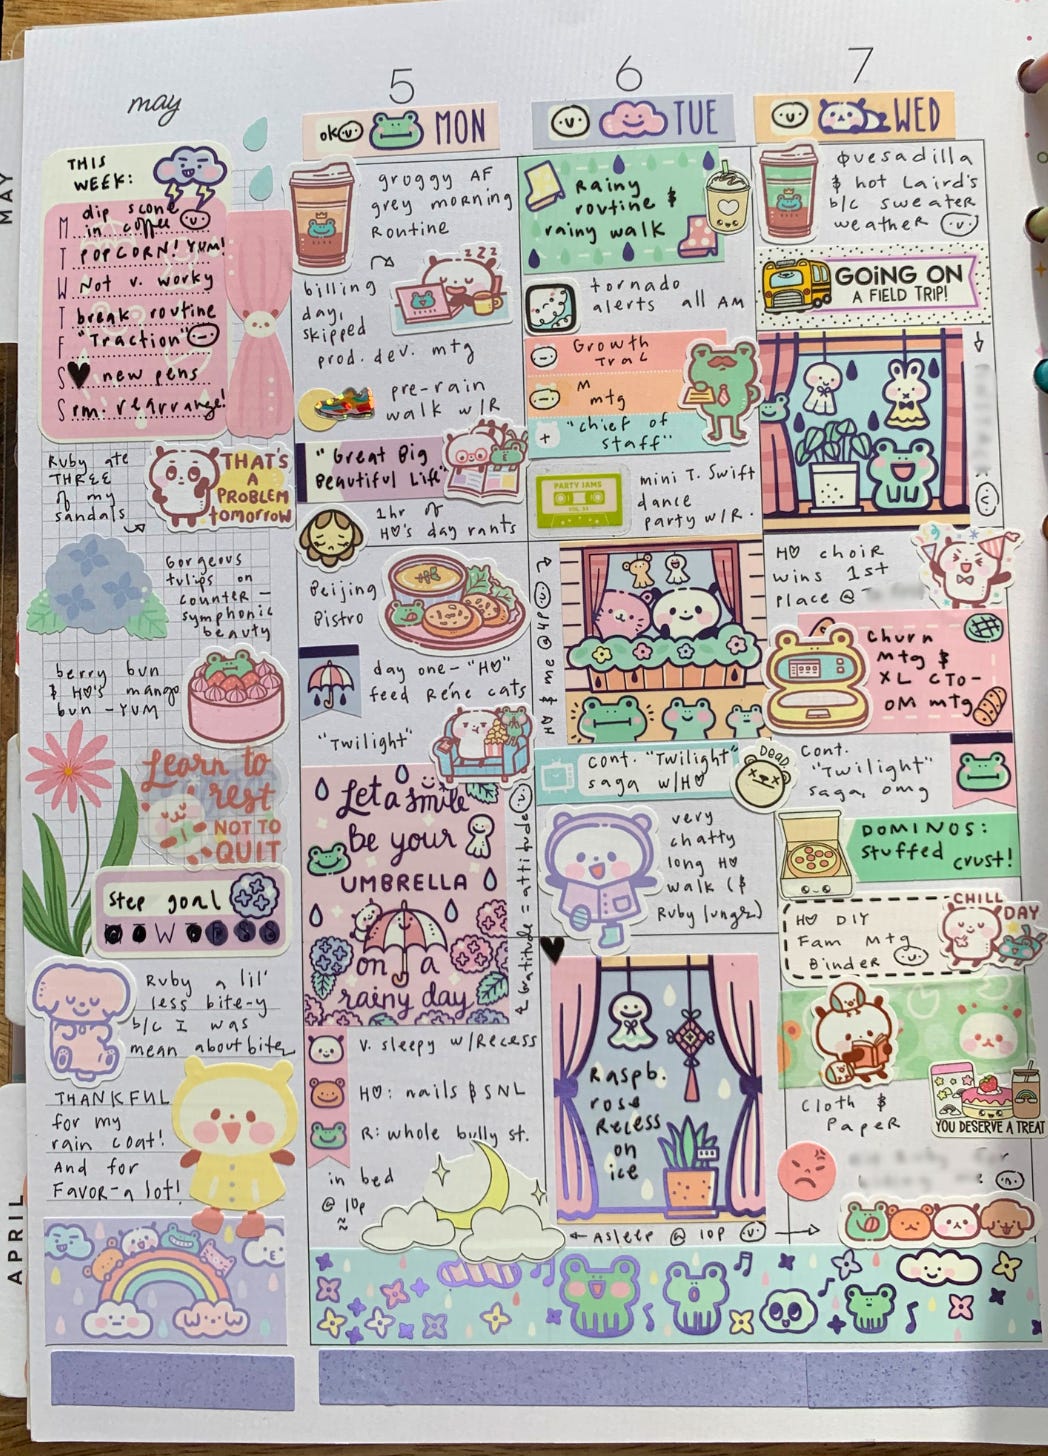 MAY
APRIL
may
THIS
WEEK:
M dip scone
in coffee
T POPCORN! YUM!
W Not v. worky
T break routine
F "Traction"
S new pens
S rm. rearrange!
Ruby ate
THREE
of my
sandals
THAT'S
A
PROBLEM
TOMORROW
Gorgeous
tulips on
counter –
symphonic
beauty
berry bun
& H♡'s mango
bun – YUM
Learn to
rest
NOT TO
QUIT
Step goal
W
Ruby a lil'
less bite-y
b/c I was
mean about bitez
THANKFUL
for my
rain coat!
And for
Favor – a lot!
5
ok MON
groggy AF
grey morning
Routine
zzz
billing
day,
skipped
prod. dev. mtg
pre-rain
walk w/R
"Great Big
Beautiful Life"
1hr of
H♡'s day rants
Beijing
Bistro
day one – "H♡"
feed Réne cats
"Twilight"
Let a smile
be your
UMBRELLA
on a
rainy day
V. sleepy w/Recess
H♡: nails & SNL
R: whole bully st.
in bed
@ 10p
6
TUE
Rainy
routine &
rainy walk
tornado
alerts all AM
Growth
Trac
M
mtg
+ "chief of
staff"
PARTY JAMS
VOL. 21
mini T. Swift
dance
party w/R.
cont. "Twilight"
saga w/H♡
DEAD
very
chatty
long H♡
walk (&
Ruby lungz)
Gratitude = attitude
Raspb.
rose
Recess
on
ice
← Asleep @ 10p →
7
WED
Quesadilla
& hot Laird's
b/c sweater
weather
GOING ON
A FIELD TRIP!
H♡ choir
wins 1st
place @
Churn
mtg &
XL CTO-
OM mtg
Cont.
"Twilight"
saga, omg
DOMINOS:
stuffed
crust!
H♡ DIY
Fam Mtg
Binder
CHILL
DAY
Cloth &
Paper
YOU DESERVE A TREAT